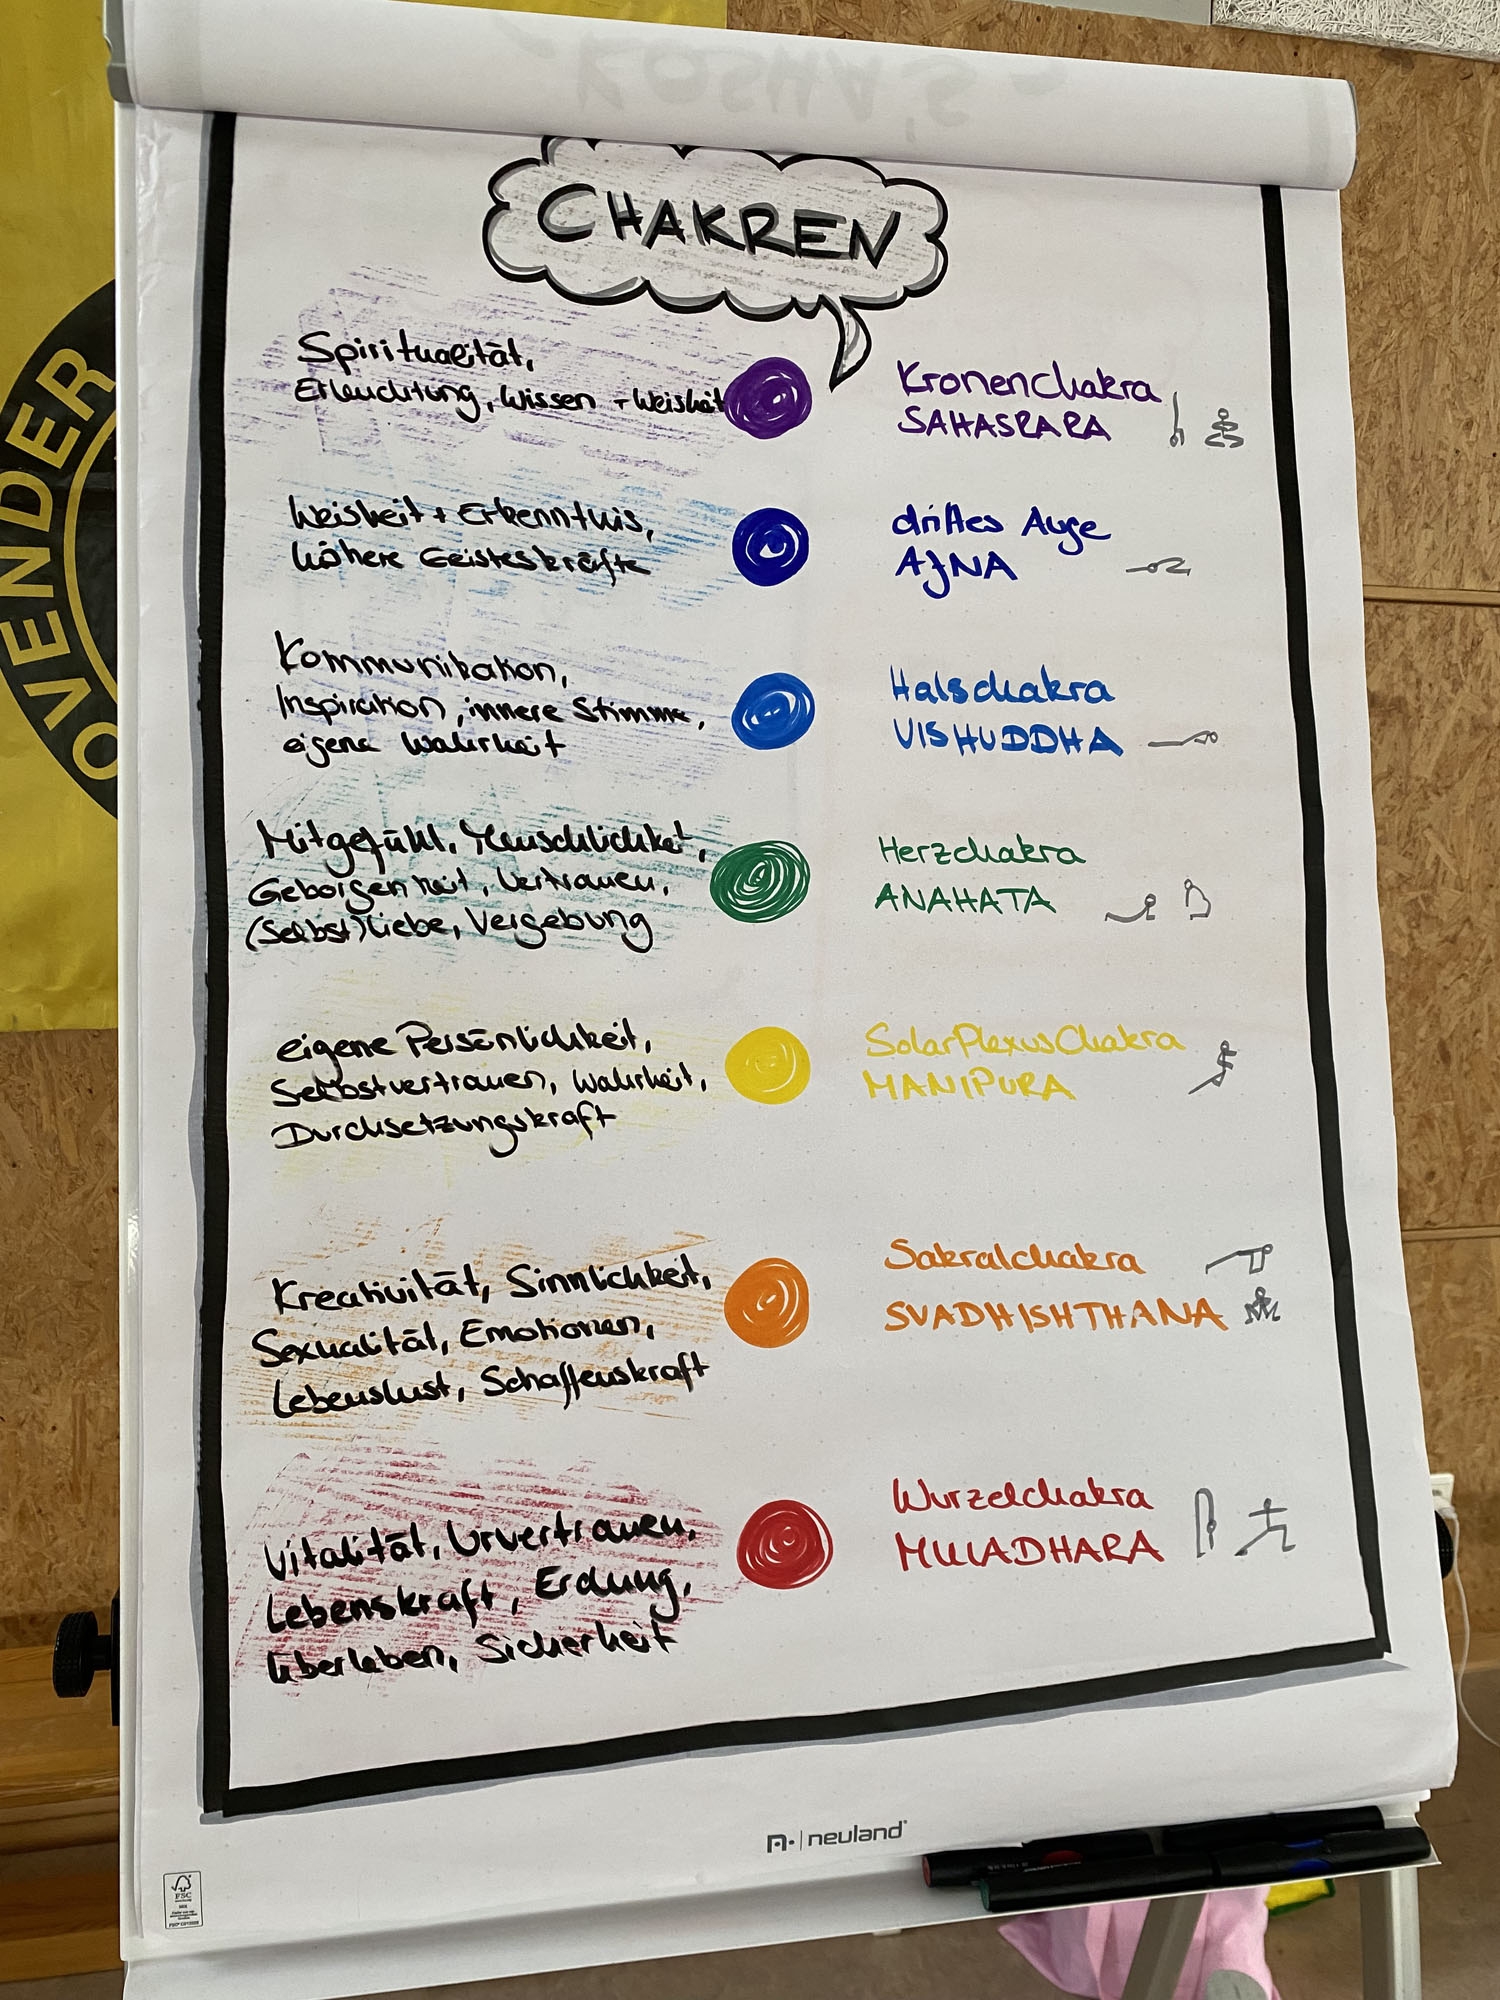 KOSHA'S
CHAKREN
Spiritualität,
Erleuchtung, Wissen + Weisheit
Kronenchakra
SAHASRARA
Weisheit + Erkenntnis,
höhere Geisteskräfte
drittes Auge
AJNA
Kommunikation,
Inspiration, innere Stimme,
eigene Wahrheit
Halschakra
VISHUDDHA
Mitgefühl, Menschlichkeit,
Geborgenheit, Vertrauen,
(Selbst)liebe, Vergebung
Herzchakra
ANAHATA
eigene Persönlichkeit,
Selbstvertrauen, Wahrheit,
Durchsetzungskraft
SolarPlexusChakra
MANIPURA
Kreativität, Sinnlichkeit,
Sexualität, Emotionen,
Lebenslust, Schaffenskraft
Sakralchakra
SVADHISHTHANA
Vitalität, Urvertrauen,
Lebenskraft, Erdung,
Überleben, Sicherheit
Wurzelchakra
MULADHARA
neuland
FSC
OVENDER